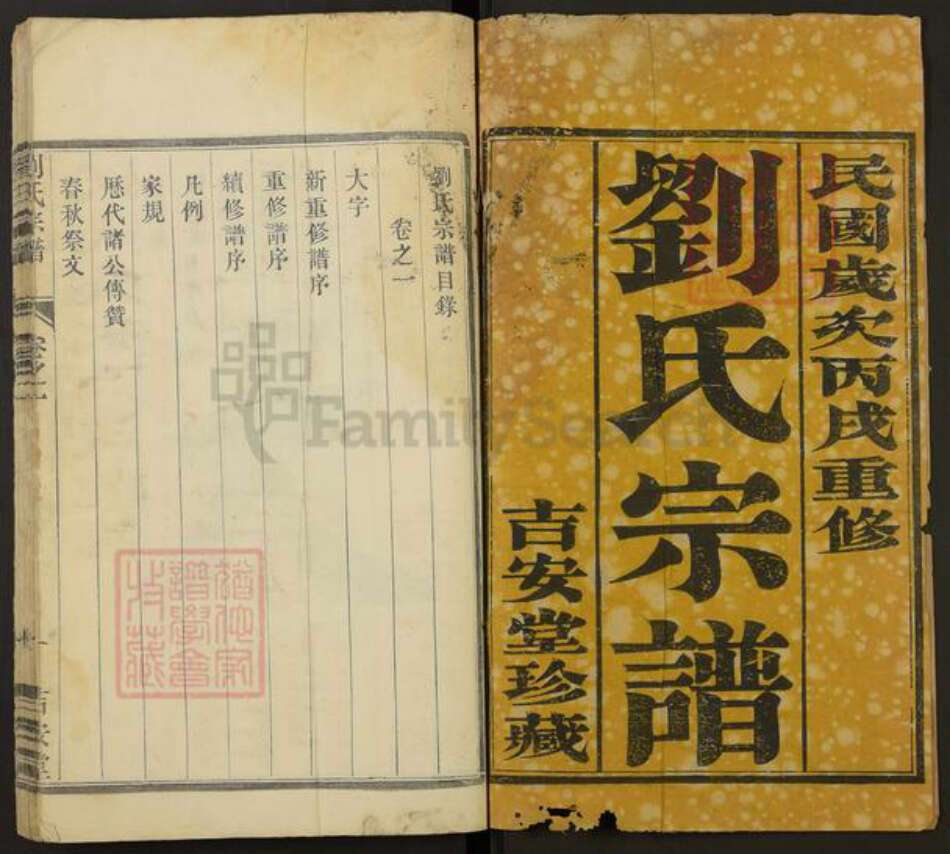 民國歲次丙戌重修
劉氏宗譜
吉安堂珍藏
劉氏宗譜目錄
卷之一
大字
新重修譜序
重修譜序
續修譜序
凡例
家規
歷代諸公傳贊
春秋祭文
劉氏宗譜
卷之一
吉安堂
譜學會
收藏
FamilySearch